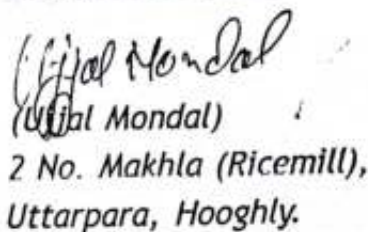 Ujjal Mondal
(Ujjal Mondal)
2 No. Makhla (Ricemill),
Uttarpara, Hooghly.